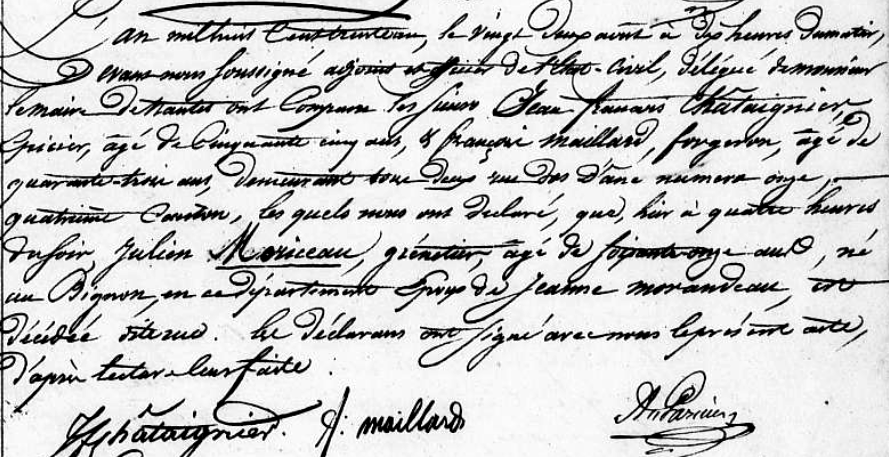 L'an mil huit cent trente un, le vingt deux août à dix heures du matin,
Devant nous soussigné adjoint et officier de l'état-civil, délégué de monsieur
le maire de Nantes ont comparu les sieurs Jean françois Châtaignier,
épicier, âgé de cinquante cinq ans, & françois maillard, forgeron, âgé de
quarante-trois ans, demeurant tous deux rue dos d'ane numero onze,
quatrième canton, lesquels nous ont declaré, que, hier à quatre heures
du soir, Julien Moriceau, grénetier, âgé de soixante-onze ans, né
au Bignon, en ce département Epoux de Jeanne morandeau, est
décédé dite rue. Les déclarans ont signé avec nous le présent acte,
d'après lecture à leur faite.
JF Châtaignier. f. maillard